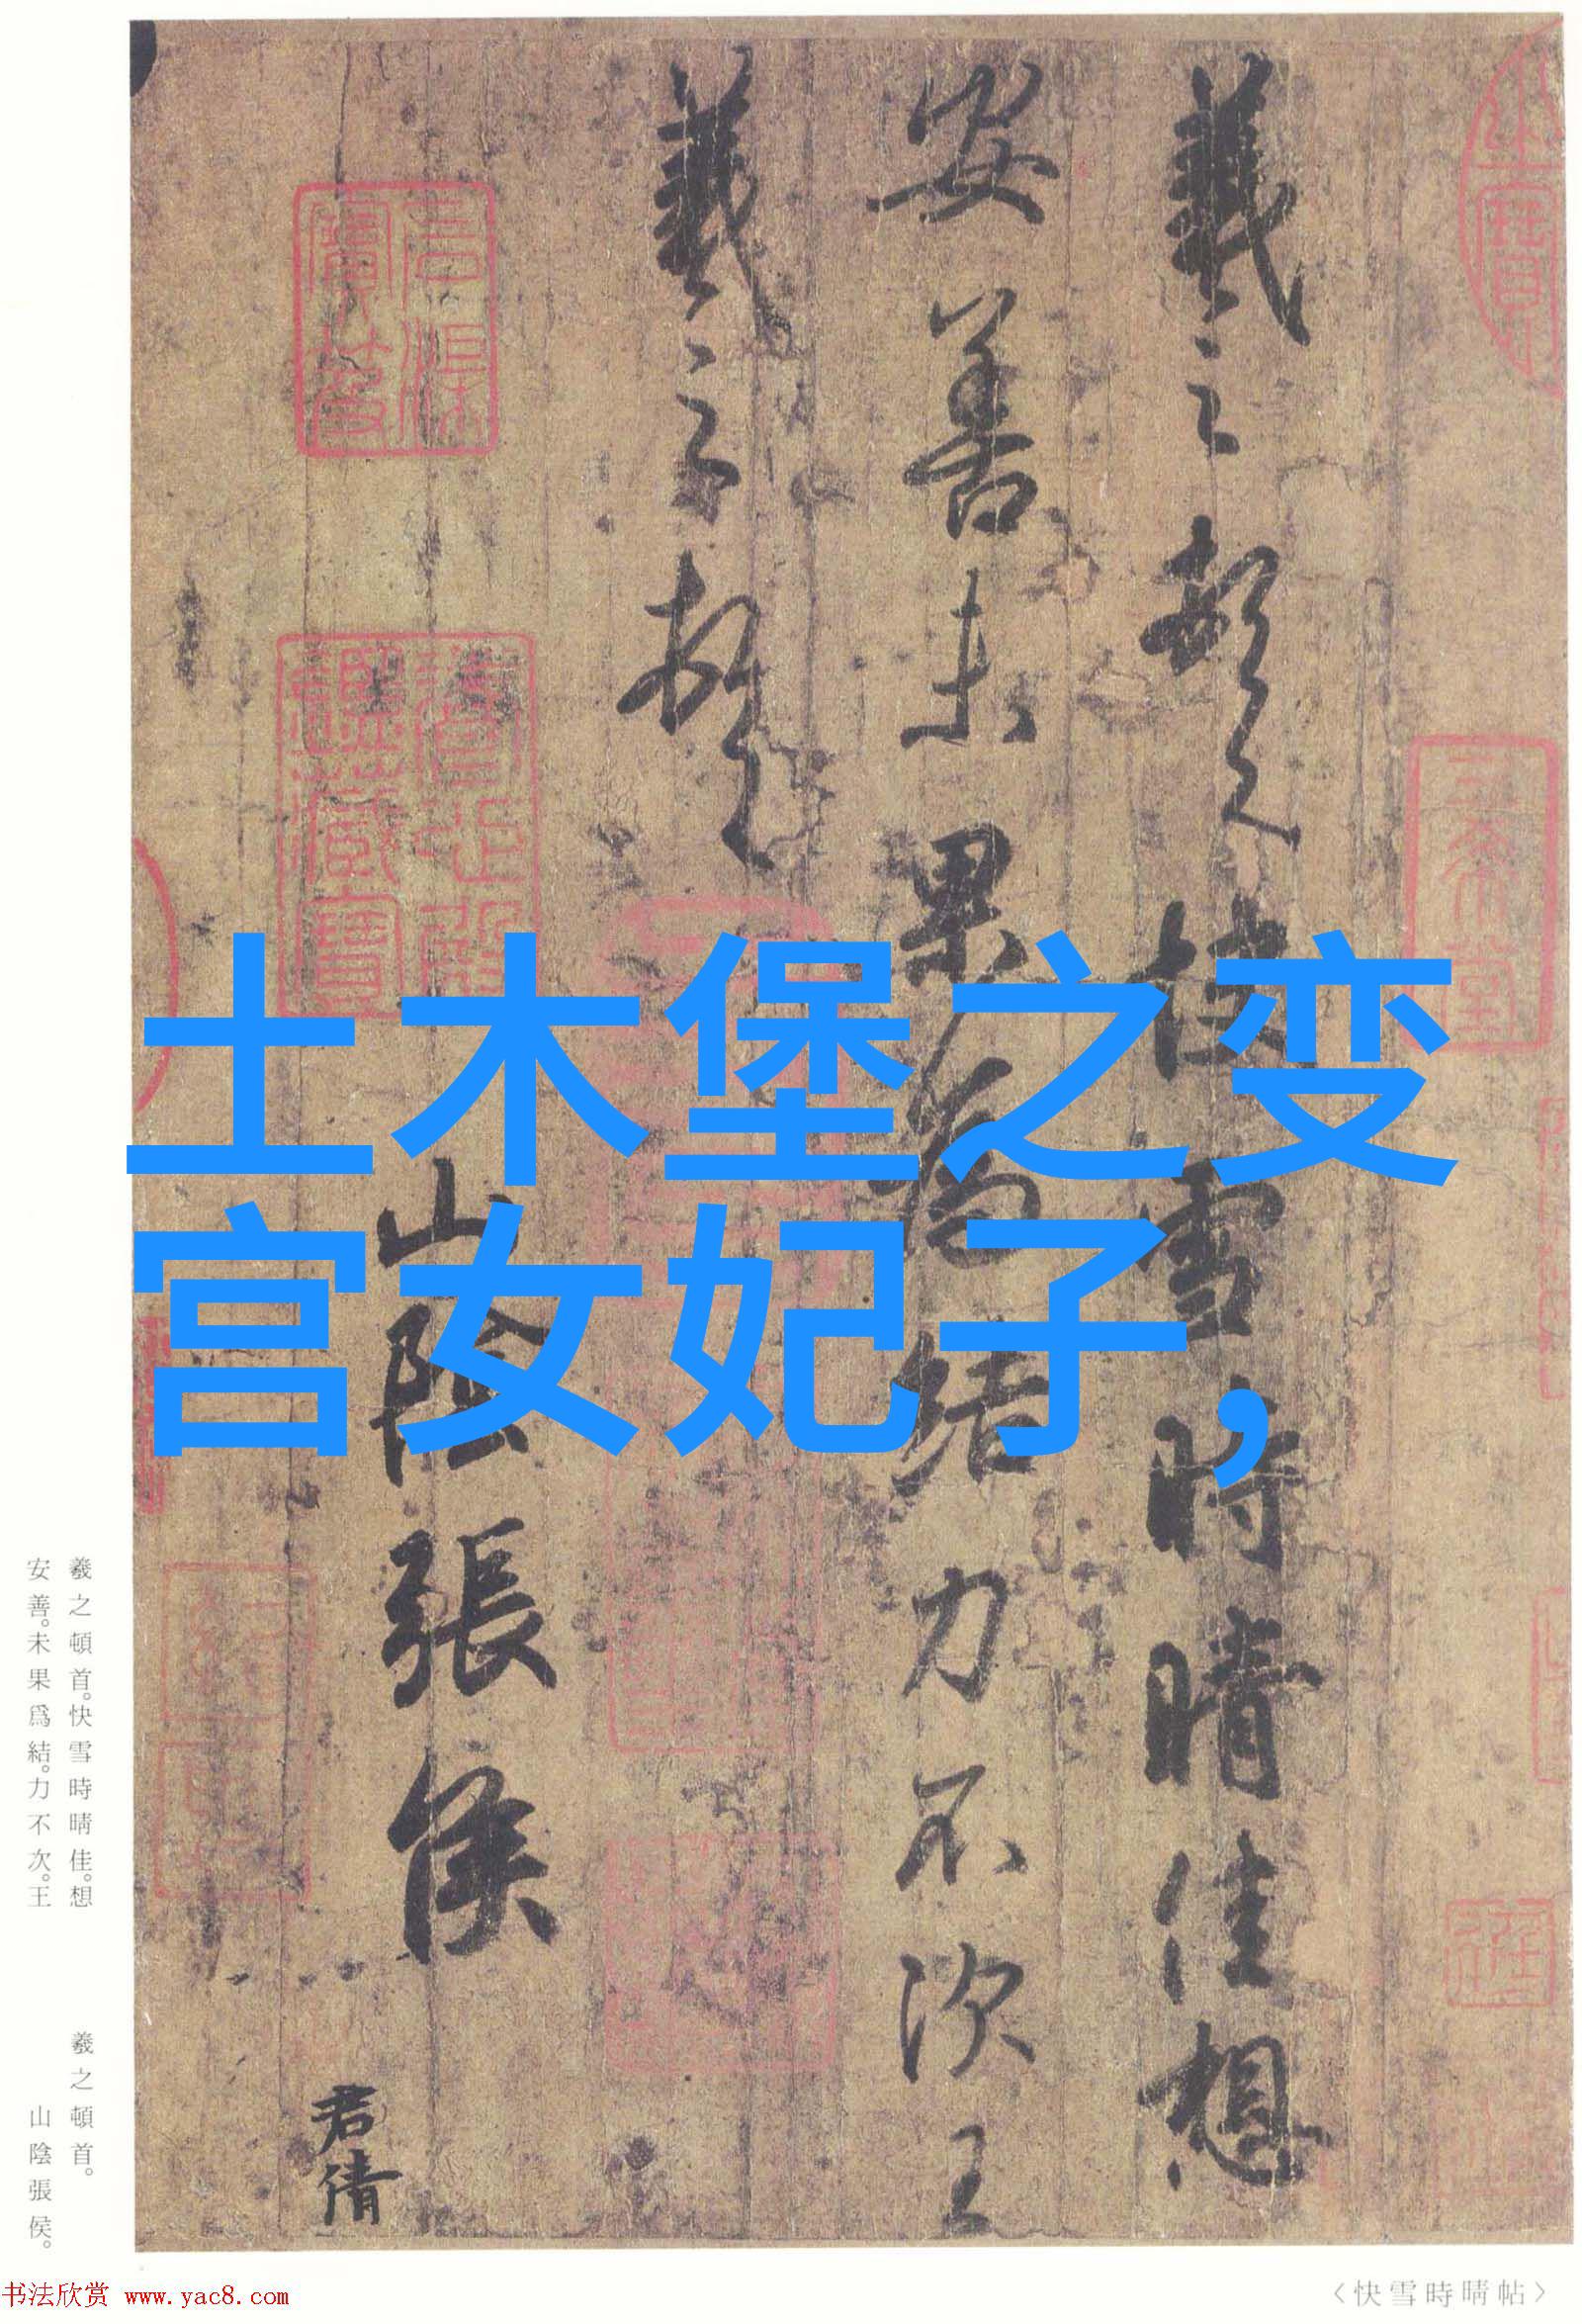 羲之頓首快雪時晴佳想
安善未果為結力不次王
羲之頓首
山陰張侯
君倩
土木堡之变
宫女妃子，
羲之頓首。快雪時晴佳。想
安善。未果爲結。力不次。王
羲之頓首。
山陰張侯。
书法欣赏 www.yac8.com
〈快雪時晴帖〉